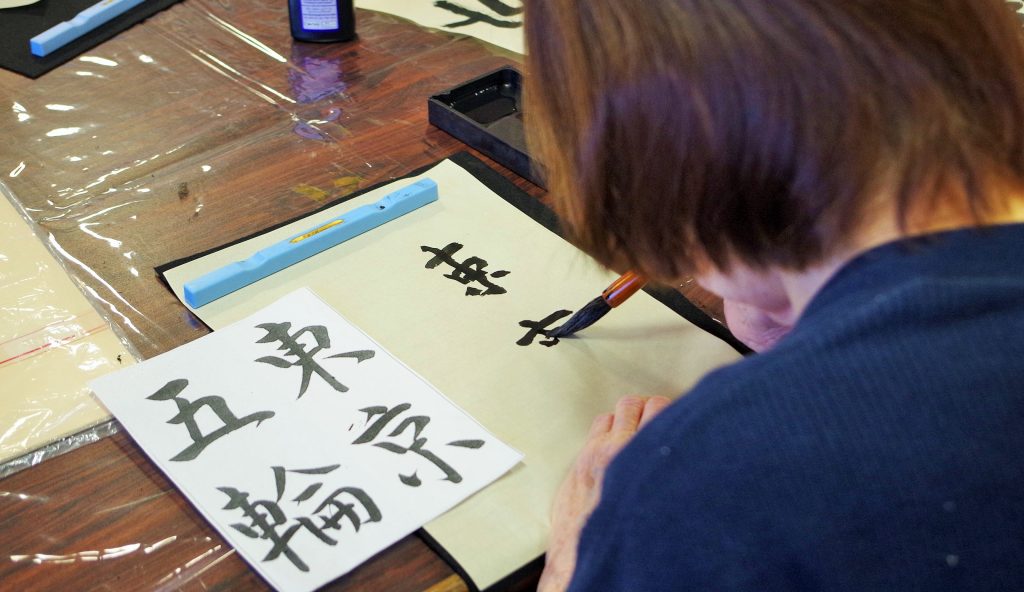 東京
五輪
東